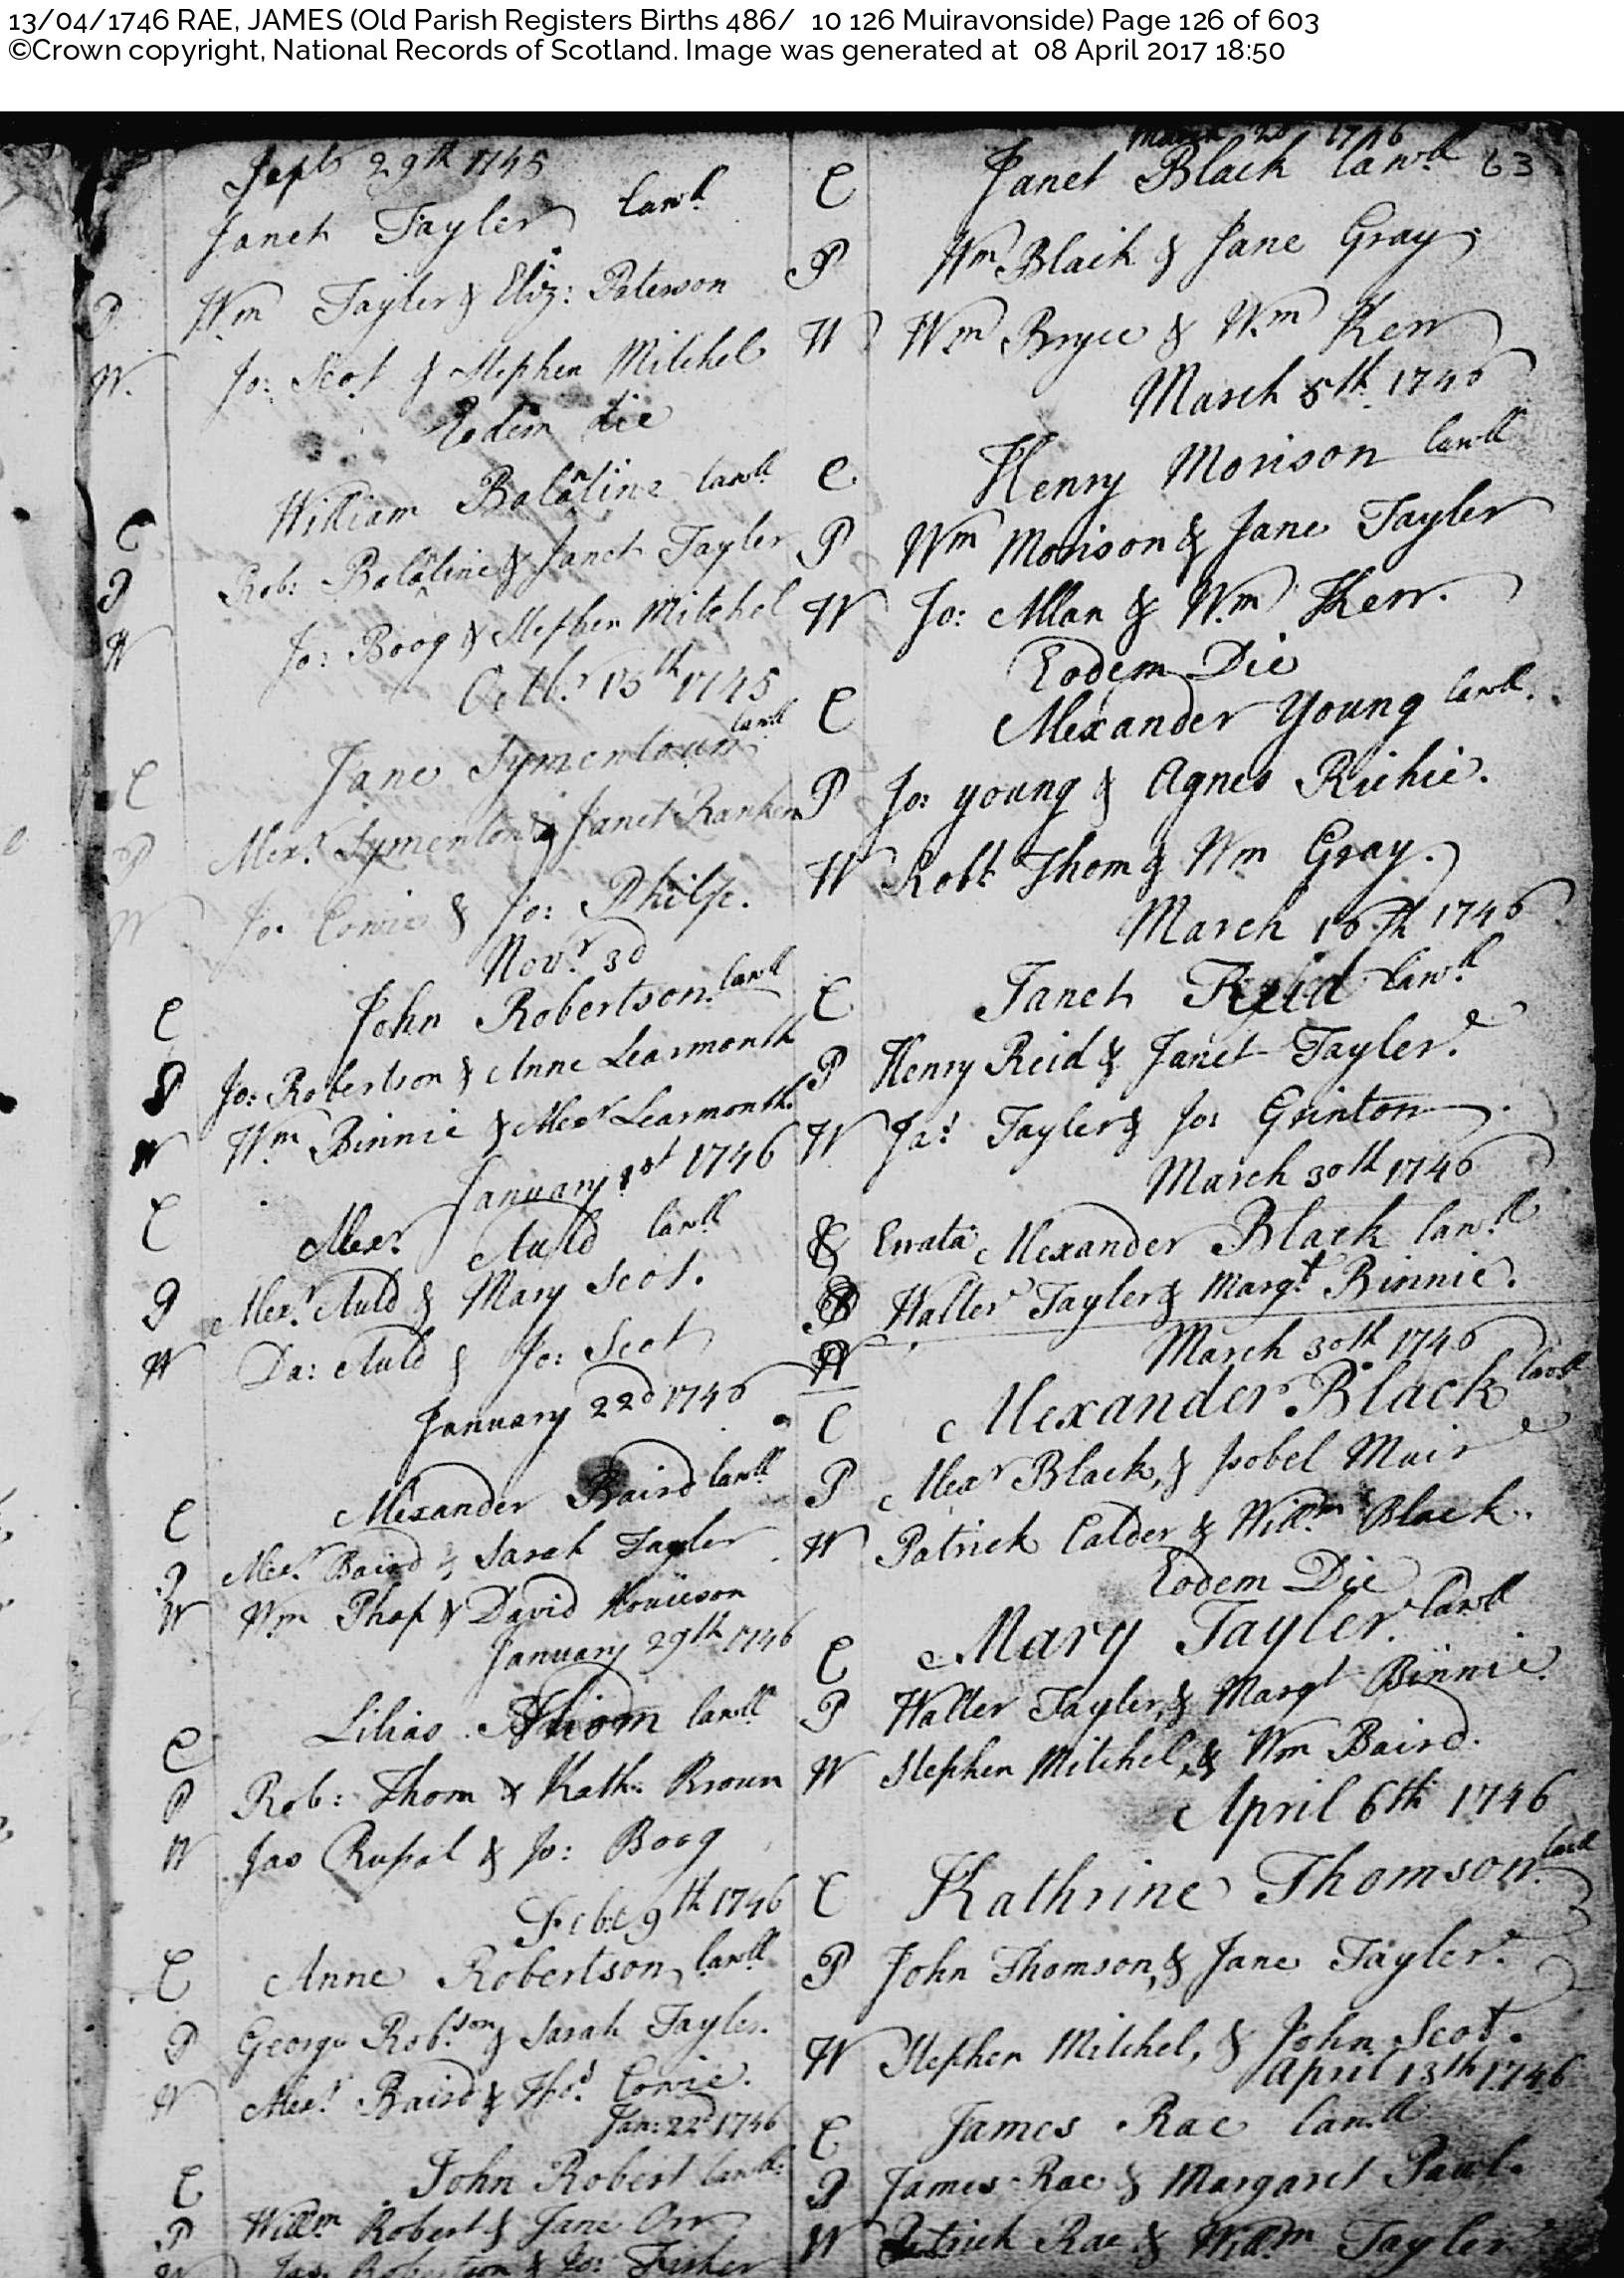 13/04/1746 RAE, JAMES (Old Parish Registers Births 486/ 10 126 Muiravonside) Page 126 of 603
©Crown copyright, National Records of Scotland. Image was generated at 08 April 2017 18:50
Sept 29th 1745
Janet Tayler lawll
P Wm Tayler & Eliz: Paterson
W Jo: Scot & Stephen Mitchel
Eodem die
C William Balantine lawll
P Rob: Balantine & Janet Tayler
W Jo: Boog & Stephen Mitchel
Octbr 13th 1745
C Jane Symentoun lawll
P Alexr Symenton & Janet Ranken
W Jo: Cowie & Jo: Philp.
Novr 3d
C John Robertson lawll
P Jo: Robertson & Anne Learmonth
W Wm Binnie & Alexr Learmonth.
January 1st 1746
C Alexr Auld lawll
P Alexr Auld & Mary Scot.
W Da: Auld & Jo: Scot
January 22d 1746
C Alexander Baird lawll
P Alexr Baird & Sarah Tayler
W Wm & David
January 29th 1746
C Lilias Thom lawll
P Rob: Thom & Kath: Broun
W Jas & Jo: Boog
Feb: 9th 1746
C Anne Robertson lawll
P George Robtson & Sarah Tayler.
W Alexr Baird & Thos Cowie.
Jan: 22d 1746
C John Robert lawll
P Willm Robert & Jane Orr
W Robertson & Jo: Fisher
March 1746
63
C Janet Black lawll
P Wm Black & Jane Gray
W Wm Bryce & Wm Kerr
March 5th 1746
C Henry Morison lawll
P Wm Morison & Jane Tayler
W Jo: Allan & Wm Kerr.
Eodem Die
C Alexander Young lawll.
P Jo: young & Agnes Richie.
W Robt Thom & Wm Gray.
March 16th 1746
C Janet Reid lawll
P Henry Reid & Janet Tayler.
W Jas Tayler & Jo: Grinton
March 30th 1746
C Errata Alexander Black lawll
P Walter Tayler & Margt Binnie.
W
March 30th 1746
C Alexander Black lawll
P Alexr Black, & Isobel Muir
W Patrick Calder & Willm Black.
Eodem Die
C Mary Tayler. lawll
P Walter Tayler, & Margt Binnie.
W Stephen Mitchel, & Wm Baird.
April 6th 1746
C Kathrine Thomson lawll
P John Thomson, & Jane Tayler.
W Stephen Mitchel, & John Scot.
April 13th 1746
C James Rae lawll
P James Rae & Margaret Paul.
W Patrick Rae & Willm Tayler